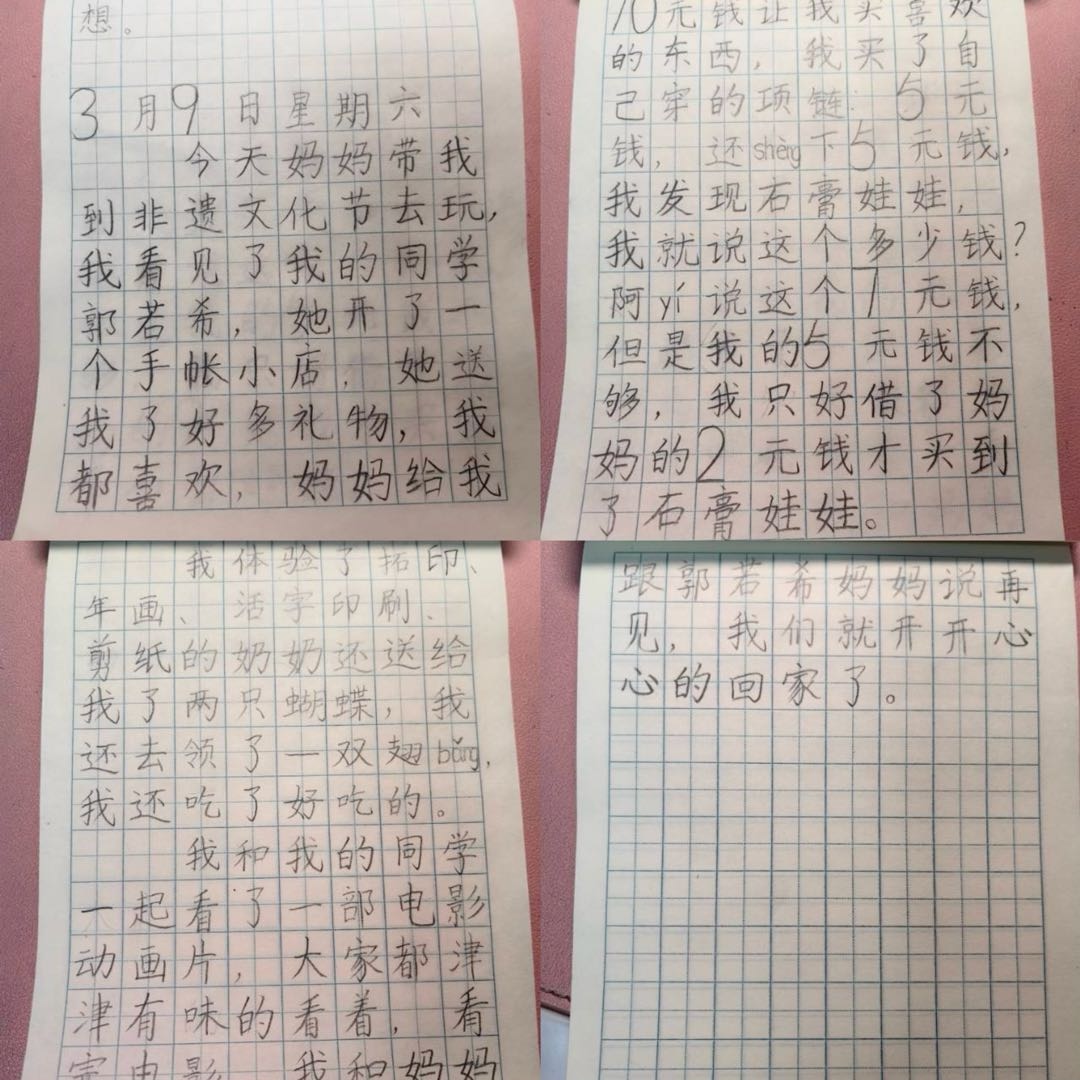 想。
3月9日星期六
今天妈妈带我
到非遗文化节去玩，
我看见了我的同学
郭若希，她开了一
个手帐小店，她送
我了好多礼物，我
都喜欢，妈妈给我
10元钱让我买喜欢
的东西，我买了自
己穿的项链：5元
钱，还shèng下5元钱，
我发现石膏娃娃，
我就说这个多少钱？
阿yí说这个7元钱，
但是我的5元钱不
够，我只好借了妈
妈的2元钱才买到
了石膏娃娃。
我体验了拓印、
年画、活字印刷、
剪纸的奶奶还送给
我了两只蝴蝶，我
还去领了一双翅bǎng，
我还吃了好吃的。
我和我的同学
一起看了一部电影
动画片，大家都津
津有味的看着，看
完电影，我和妈妈
跟郭若希妈妈说再
见，我们就开开心
心的回家了。